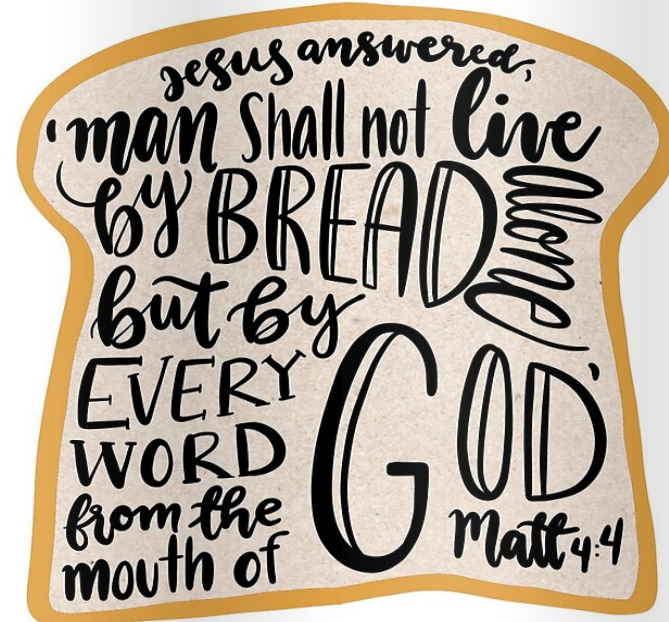 Jesus answered,
'man Shall not live
by BREAD alone
but by
EVERY
WORD
from the
mouth of
GOD'
Matt 4:4